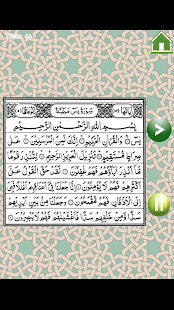 سُوْرَةُ يٰسٓ مَكِّيَّةٌ
بِسْمِ اللهِ الرَّحْمٰنِ الرَّحِيْمِ
يٰسٓ ۚ وَالْقُرْاٰنِ الْحَكِيْمِ ۙ اِنَّكَ لَمِنَ الْمُرْسَلِيْنَ ۙ عَلٰى
صِرَاطٍ مُّسْتَقِيْمٍ ؕ تَنْزِيْلَ الْعَزِيْزِ الرَّحِيْمِ ۙ لِتُنْذِرَ قَوْمًا
مَّاۤ اُنْذِرَ اٰبَآؤُهُمْ فَهُمْ غٰفِلُوْنَ لَقَدْ حَقَّ الْقَوْلُ عَلٰۤى
اَكْثَرِهِمْ فَهُمْ لَا يُؤْمِنُوْنَ اِنَّا جَعَلْنَا فِيْۤ اَعْنَاقِهِمْ اَغْلٰلًا فَهِيَ
اِلَى الْاَذْقَانِ فَهُمْ مُّقْمَحُوْنَ وَجَعَلْنَا مِنْۢ بَيْنِ اَيْدِيْهِمْ
سَدًّا وَّمِنْ خَلْفِهِمْ سَدًّا فَاَغْشَيْنٰهُمْ فَهُمْ لَا يُبْصِرُوْنَ